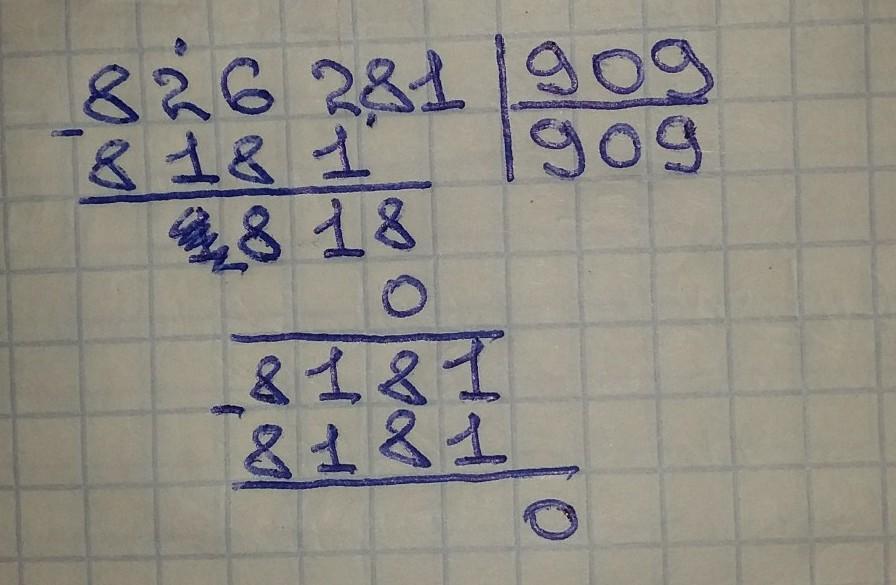 826 281 | 909
- 8181 | 909
818
0
8181
- 8181
0